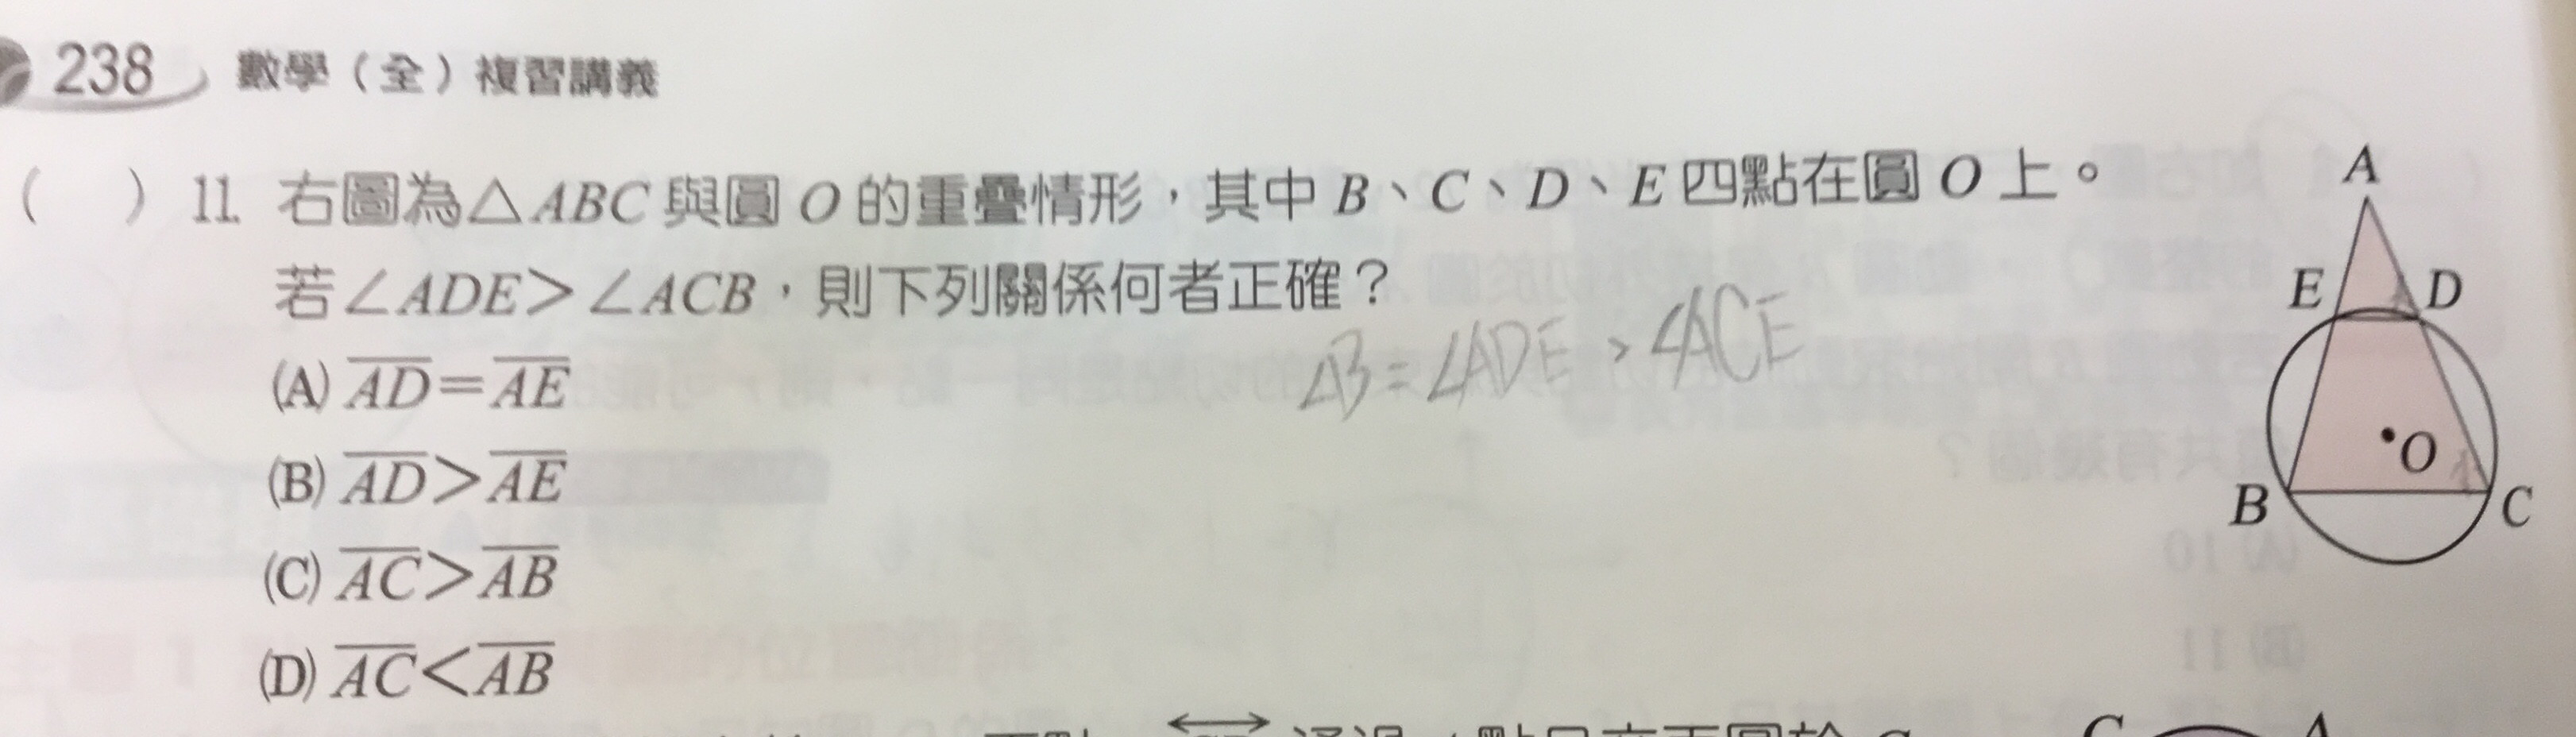 238 數學（全）複習講義
（ ）11. 右圖為△ABC與圓O的重疊情形，其中B、C、D、E四點在圓O上。
若∠ADE＞∠ACB，則下列關係何者正確？
∠B=∠ADE > ∠ACE
(A) AD＝AE
(B) AD＞AE
(C) AC＞AB
(D) AC＜AB
A
E D
O
B C
C A